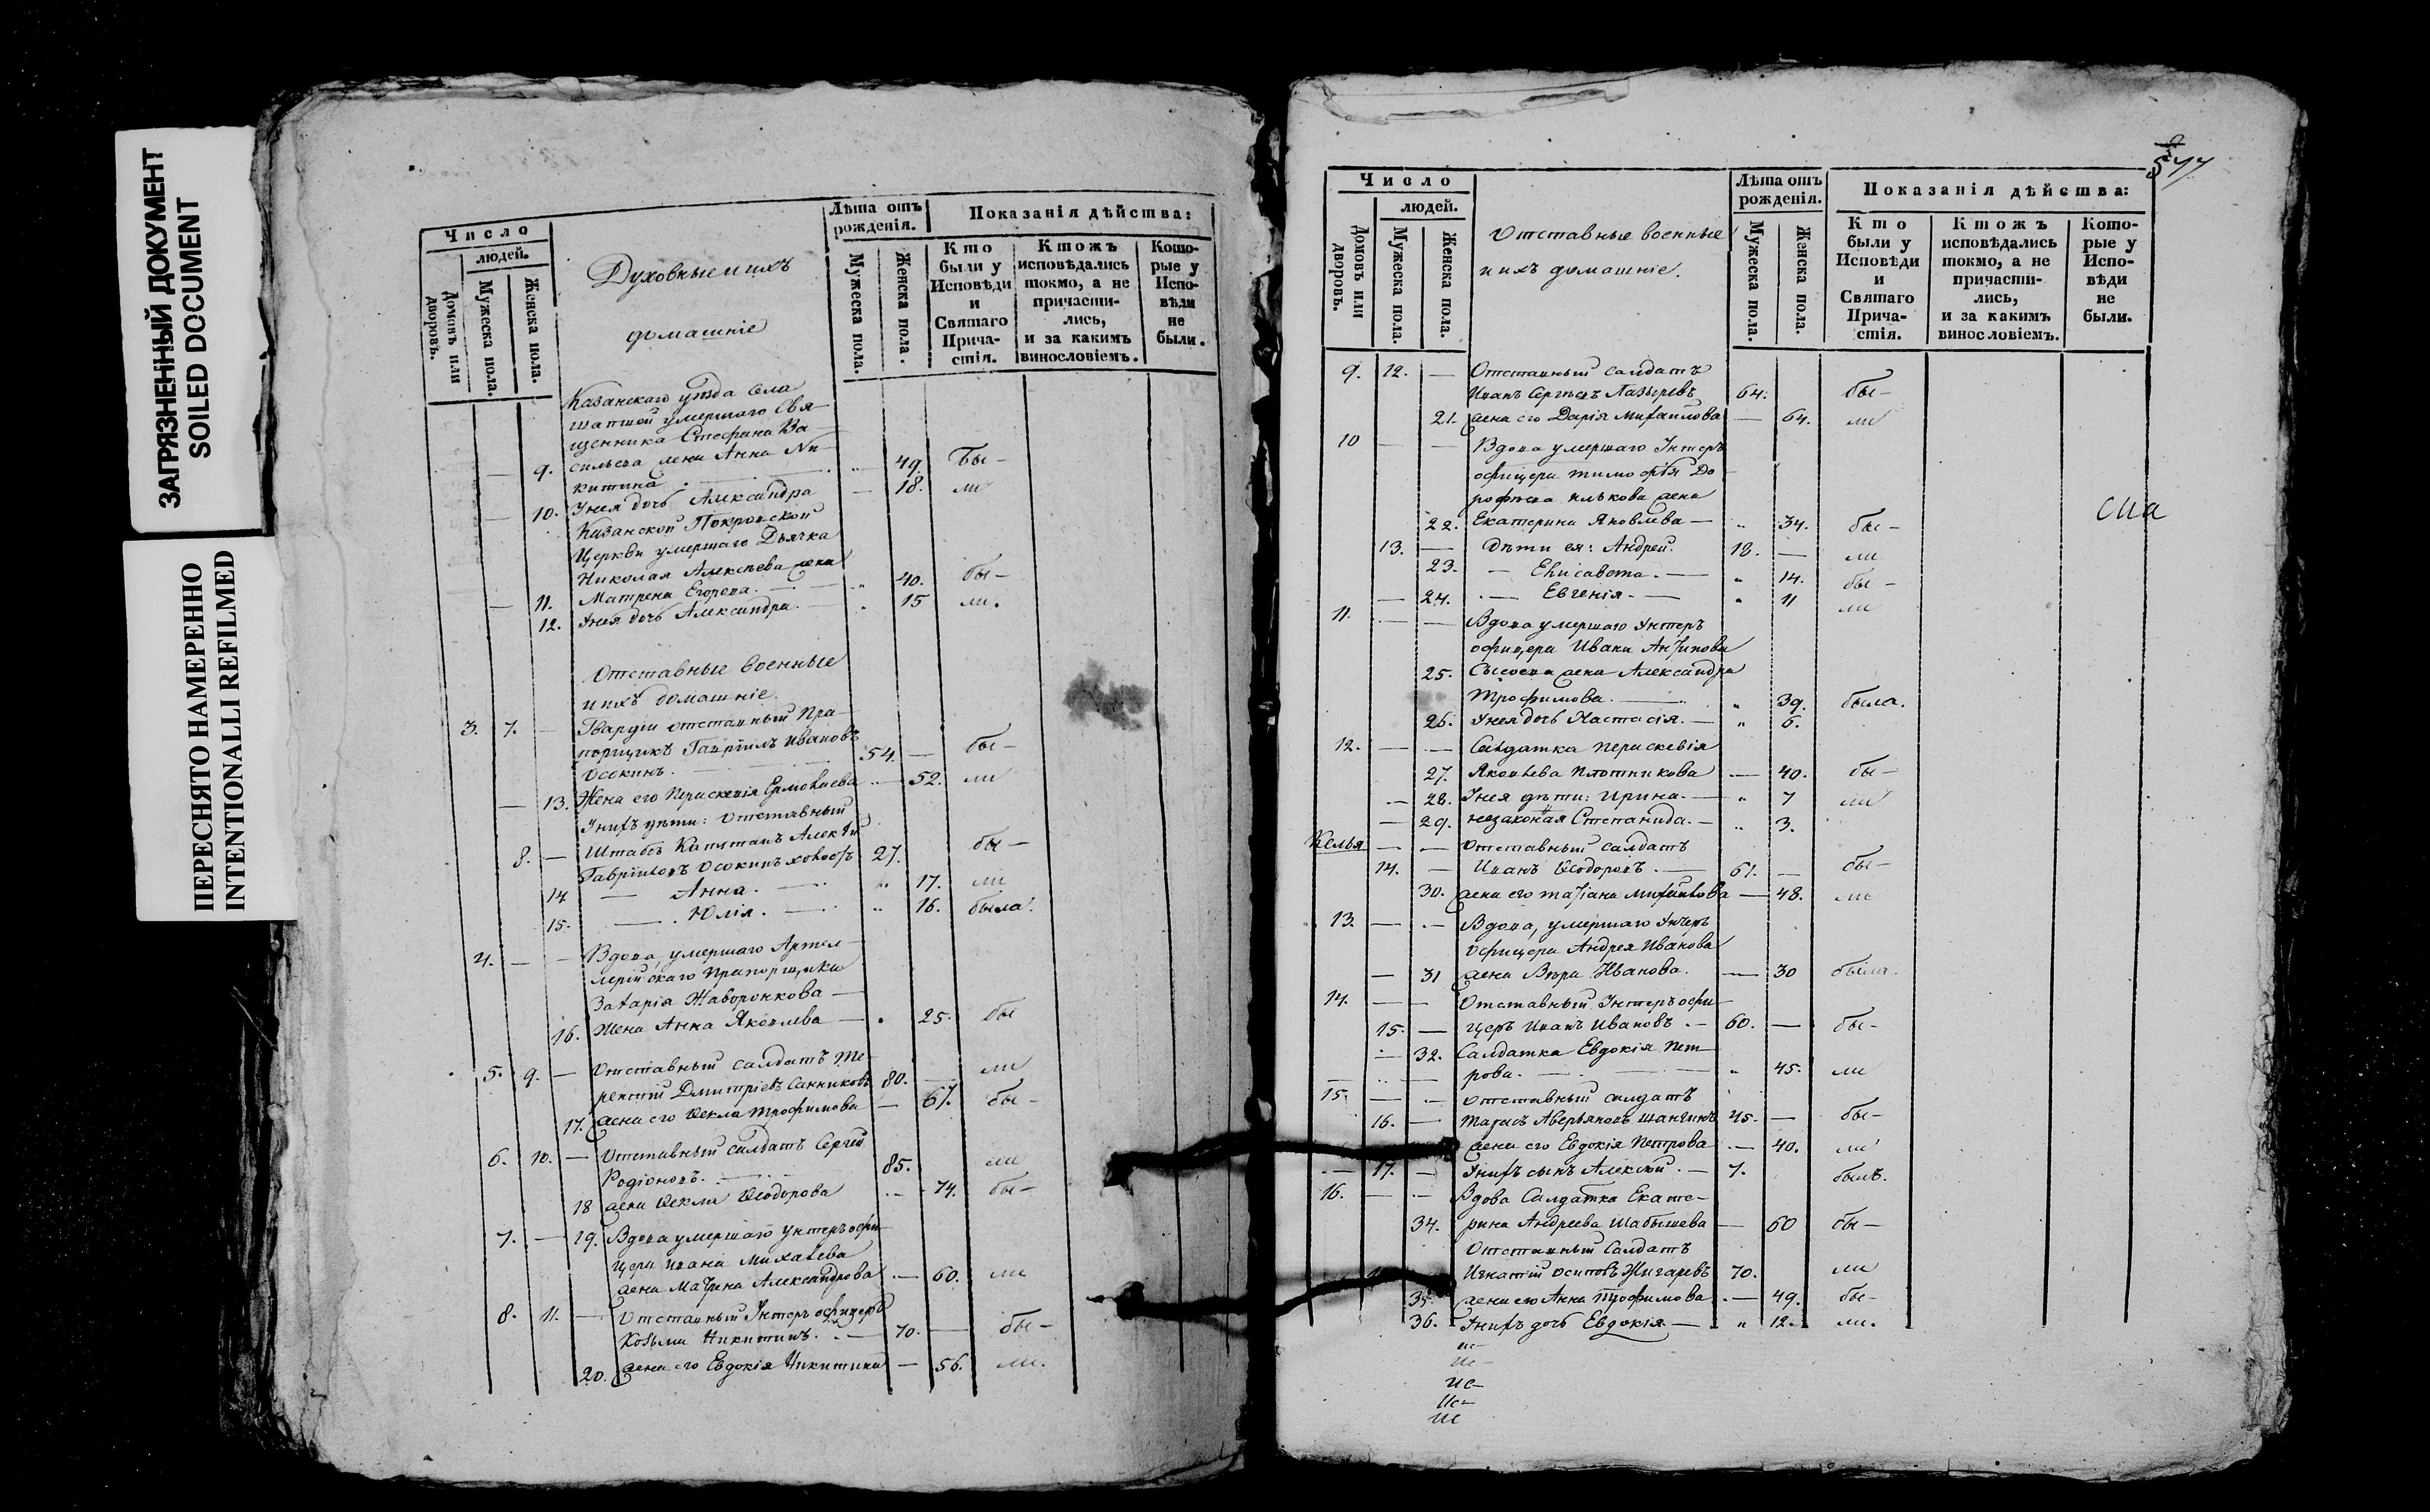 ЗАГРЯЗНЕННЫЙ ДОКУМЕНТ
SOILED DOCUMENT
ПЕРЕСНЯТО НАМЕРЕННО
INTENTIONALLI REFILMED
Число
людей.
Домовъ или дворовъ.
Мужеска пола.
Женска пола.
Духовные и ихъ
домашніе
Лѣта отъ рожденія.
Мужеска пола.
Женска пола.
Показанія дѣйства:
Кто были у Исповѣди и Святаго Прича-стія.
Ктожъ исповѣдались токмо, а не причасти-лись, и за какимъ винословіемъ.
Кото-рые у Испо-вѣди не были.
Казанскаго уѣзда села
умершаго Свя-
щенника Стефана Ва-
9. сильева жена Анна Ни-
китина . — 49. Бы-
10. У нея дочь Александра — 18. ли
Казанской Покровской
Церкви умершаго Дьячка
Николая Алексѣева жена
11. Матрена Егорова. — 40. бы-
12. У нея дочь Александра. 15 ли.
Отставные военные
и ихъ домашніе.
3. 7. — Гвардіи отставный Пра-
порщикъ Гавріилъ Ивановъ
Осокинъ. 54. — бы-
13. Жена его Параскевія Ермолаева — 52. ли
У нихъ дѣти: Отставный
8. — Штабсъ Капитанъ Алексѣй
Гавріиловъ Осокинъ холостъ 27. бы-
14 — Анна. — „ 17. ли
15. — Юлія. — „ 16. была.
4. — — Вдова, умершаго Артил-
лерійскаго Прапорщика
Захарія Жаворонкова —
16. Жена Анна Яковлева — 25. бы
5. 9. — Отставный салдатъ Те-
рентій Дмитріевъ Санниковъ 80. — ли
17. жена его Ѳекла Трофимова — 67. бы-
6. 10. — Отставный салдатъ Сергей
Родіоновъ. 85. ли
18 жена Ѳекла Ѳеодорова — 74. бы-
7. — 19. Вдова умершаго Унтеръ офи-
цера Ивана Михалева
жена Марина Александрова — 60. ли
8. 11. — Отставный Унтеръ офицеръ
Козьма Никитинъ. — 70. — бы-
20. жена его Евдокія Никитина — 56. ли.
577
Число
людей.
Домовъ или дворовъ.
Мужеска пола.
Женска пола.
Отставные военные
и ихъ домашніе.
Лѣта отъ рожденія.
Мужеска пола.
Женска пола.
Показанія дѣйства:
Кто были у Исповѣди и Святаго Прича-стія.
Ктожъ исповѣдались токмо, а не причасти-лись, и за какимъ винословіемъ.
Кото-рые у Испо-вѣди не были.
9. 12. — Отставный салдатъ
Иванъ Сергѣевъ Лазыревъ 64. бы-
21. жена его Дарія Михайлова — 64. ли
10 — — Вдова умершаго Унтеръ
офицера Тимофѣя До-
рофѣева жена
22. Екатерина Яковлева — „ 34. бы-
13. — Дѣти ея: Андрей. 18. — ли
23. — Елисавета. — „ 14. бы-
— 24. — Евгенія. — „ 11 ли
11. — — Вдова умершаго Унтеръ
офицера Ивана Антипова
25. Сысоева жена Александра
Трофимова. — „ 39. была.
26. У нея дочь Настасія. — „ 6.
12. — — Салдатка Параскевія
27. Яковлева Плотникова — 40. бы-
— 28. У нея дѣти: Ирина. — „ 7 ли
— 29. незаконная Степанида. — „ 3.
Келья — — Отставный салдатъ
14. — Иванъ Ѳеодоровъ. — 61. — бы-
30. жена его Татіана Михайлова — 48. ли
13. — — Вдова, умершаго Унтеръ
Офицера Андрея Иванова
— 31 жена Вѣра Иванова. — 30 была.
14. — — Отставный Унтеръ офи-
15. — церъ Иванъ Ивановъ. — 60. — бы-
— 32. Салдатка Евдокія Пет-
рова. — „ 45. ли
15. — — Отставный салдатъ
16. — Тарасъ Аверьяновъ 45. — бы-
жена его Евдокія Петрова — 40. ли
— 17. — У нихъ сынъ Алексѣй. — 7. былъ.
16. — — Вдова Салдатка Екате-
34. рина Андреева Шабышева — 60 бы-
Отставный Салдатъ
Игнатій Осиповъ Жигаревъ 70. ли
35. жена его Анна Трофимова — 49. бы-
36. У нихъ дочь Евдокія — „ 12. ли.